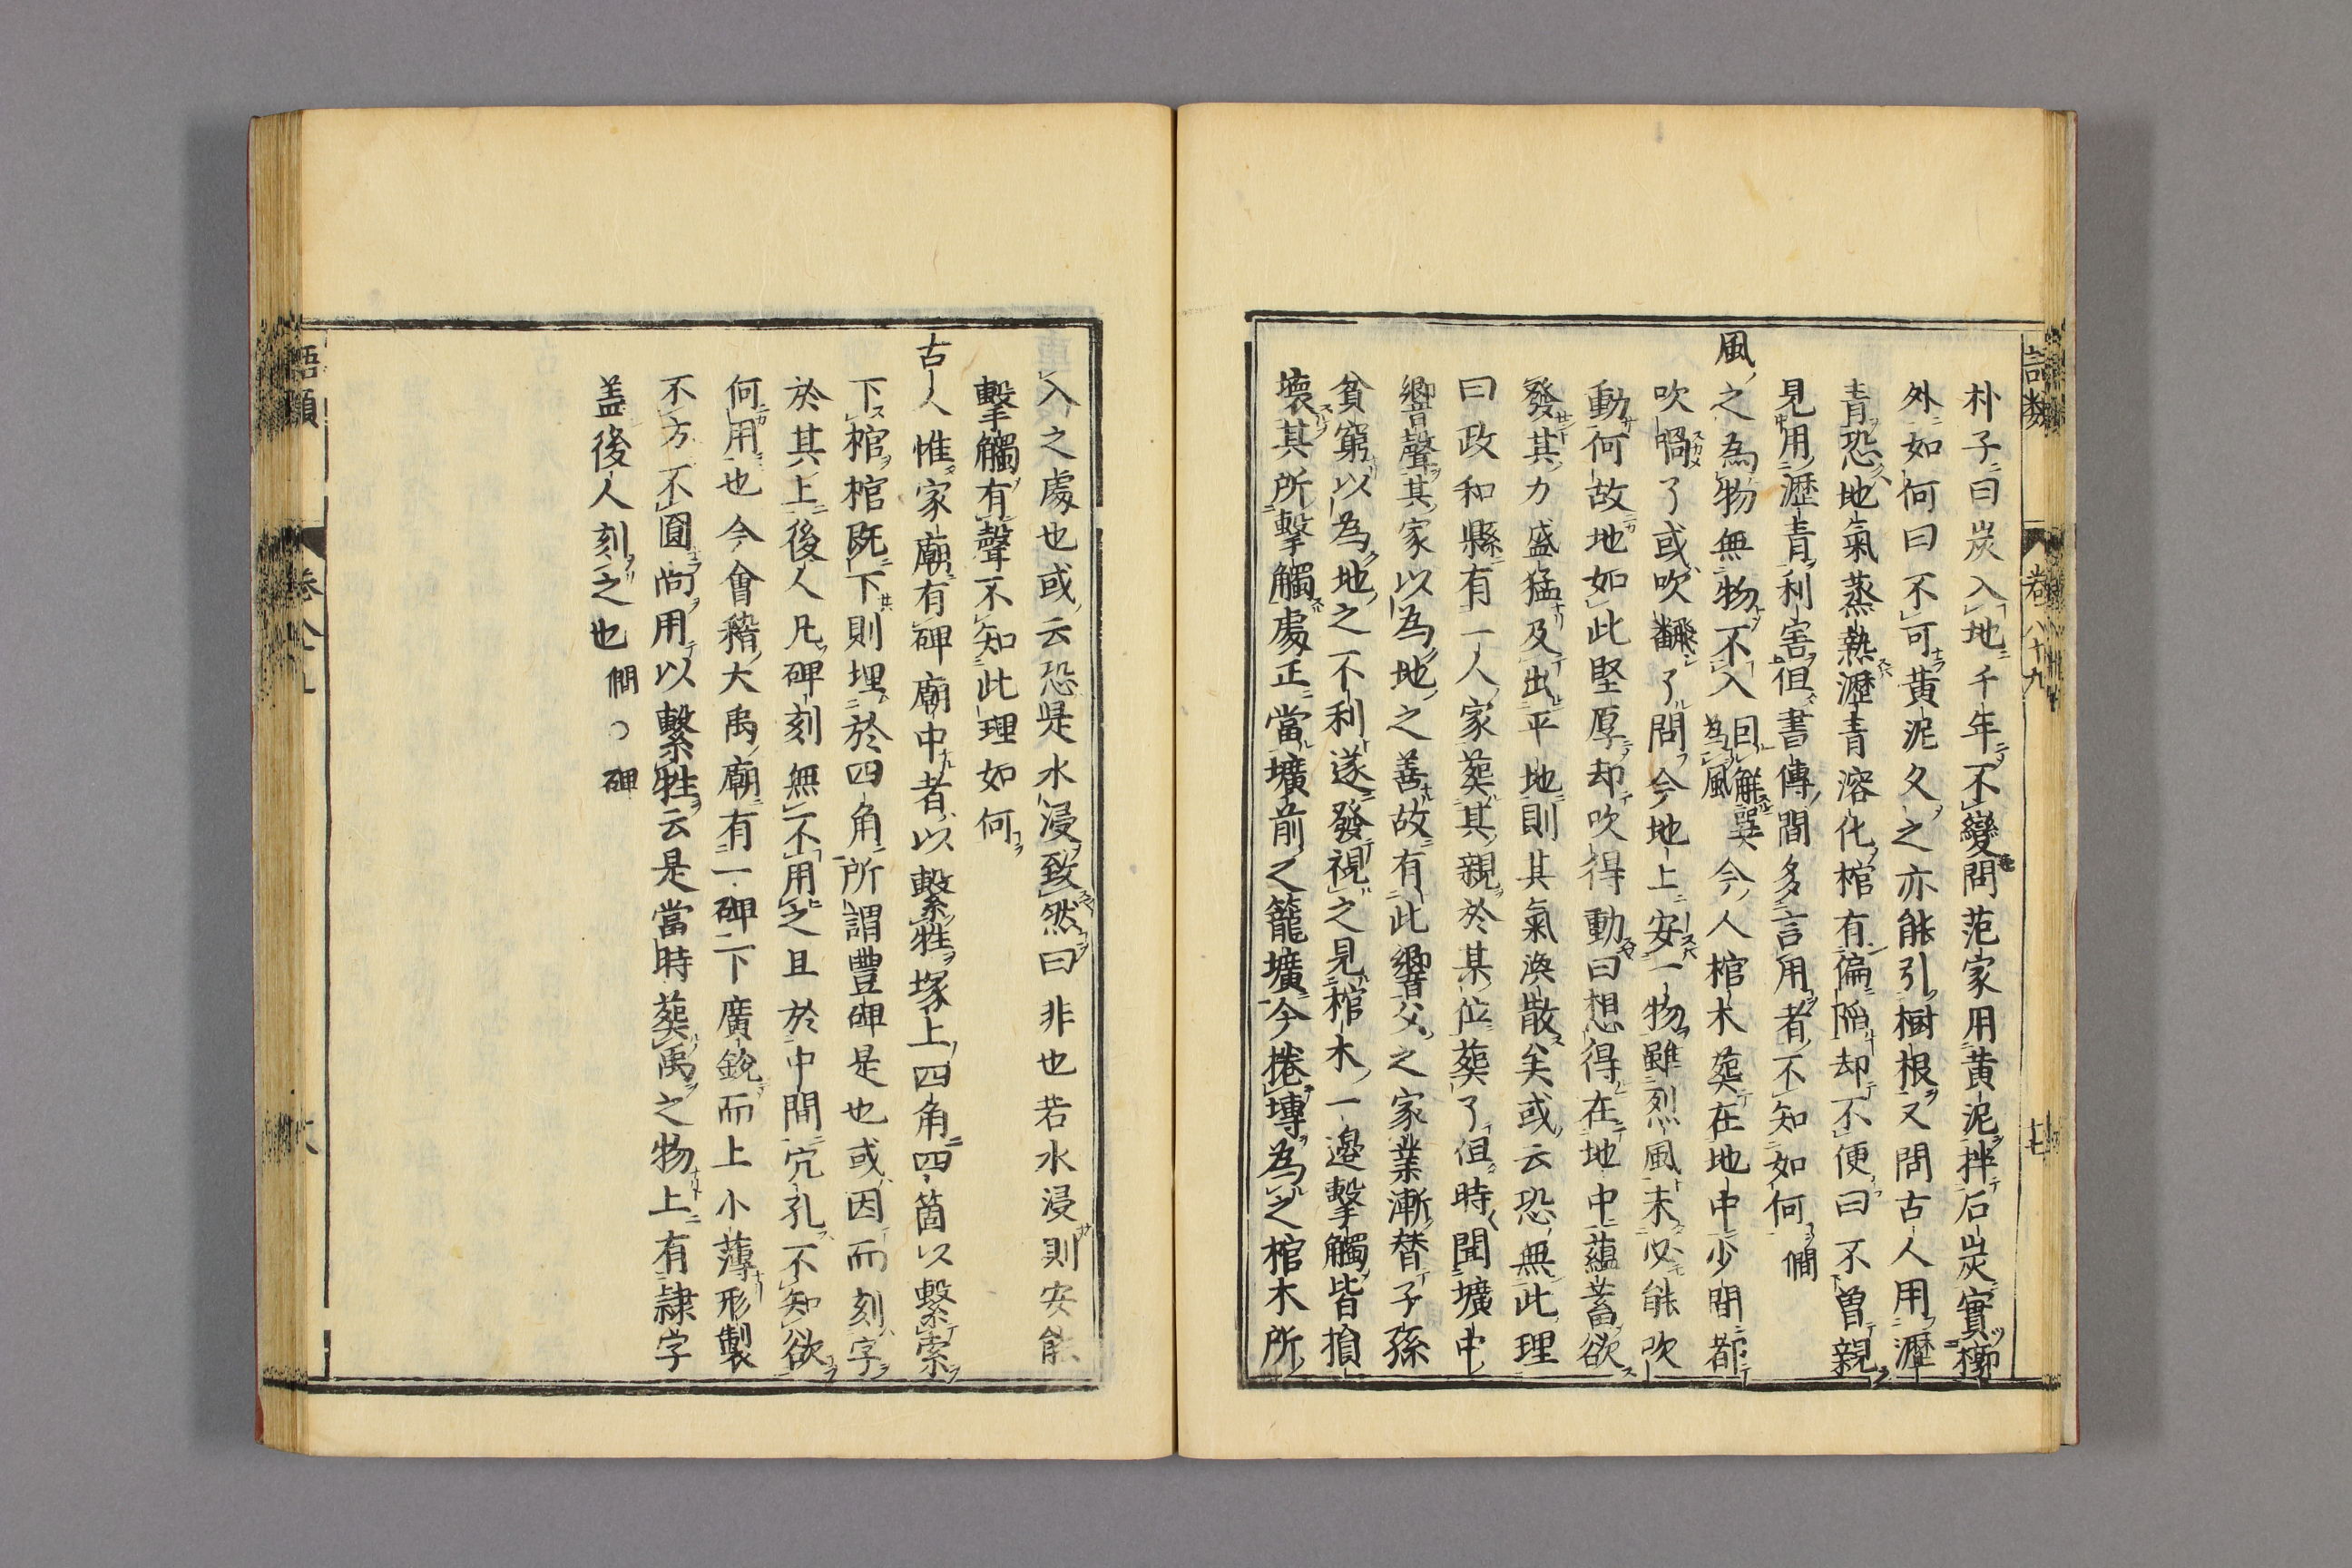 語類 卷八十九 十七
朴子曰炭入地千年不變問范家用黃泥拌石炭實槨
外如何曰不可黃泥久之亦能引樹根又問古人用瀝
青恐地氣蒸熱瀝青溶化棺有偏陷却不便曰不曾親
見用瀝青利害但書傳間多言用者不知如何 僩
風之為物無物不入 回解巽為風 今人棺木葬在地中少間都
吹喎了或吹翻了問今地上安一物雖烈風未必能吹
動何故地如此堅厚却吹得動曰想得在地中蘊蓄欲
發其力盛猛及出平地則其氣渙散矣或云恐無此理
曰政和縣有一人家葬其親於某位葬了但時聞壙中
響聲其家以為地之善故有此響父之家業漸替子孫
貧窮以為地之不利遂發視之見棺木一邊擊觸皆損
壞其所擊觸處正當壙前之籠壙今捲塼為之棺木所
入之處也或云恐是水浸致然曰非也若水浸則安能
擊觸有聲不知此理如何
古人惟家廟有碑廟中者以繫牲塚上四角四箇以繫索
下棺棺既下則埋於四角所謂豐碑是也或因而刻字
於其上後人凡碑刻無不用之且於中間穴孔不知欲
何用也今會稽大禹廟有一碑下廣銳而上小薄形製
不方不圓尚用以繫牲云是當時葬禹之物上有隷字
盖後人刻之也 僩 ○碑
語類 卷八十九